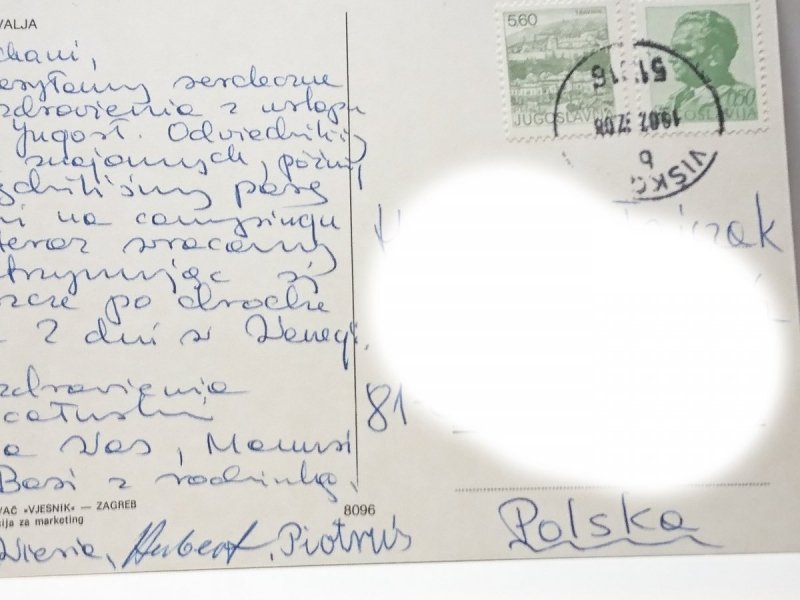 VALJA
chani,
esyłamy serdeczne
zdrowienia z urlopu
Jugosł. Odwiedziliśmy
znajomych, później
ędziliśmy parę
ni na campingu
teraz wracamy
trzymując się
szcze po drodze
2 dni w Wenecji.
zdrowienia
całuski
a Was, Mamusi
Basi z rodzinką.
VAČ »VJESNIK« — ZAGREB
sija za marketing
8096
Wiesia, Hubert, Piotruś
5,60
JUGOSLAVI
1,60
OSLAVIJA
51216
VIŠKO
b
81-
Polska